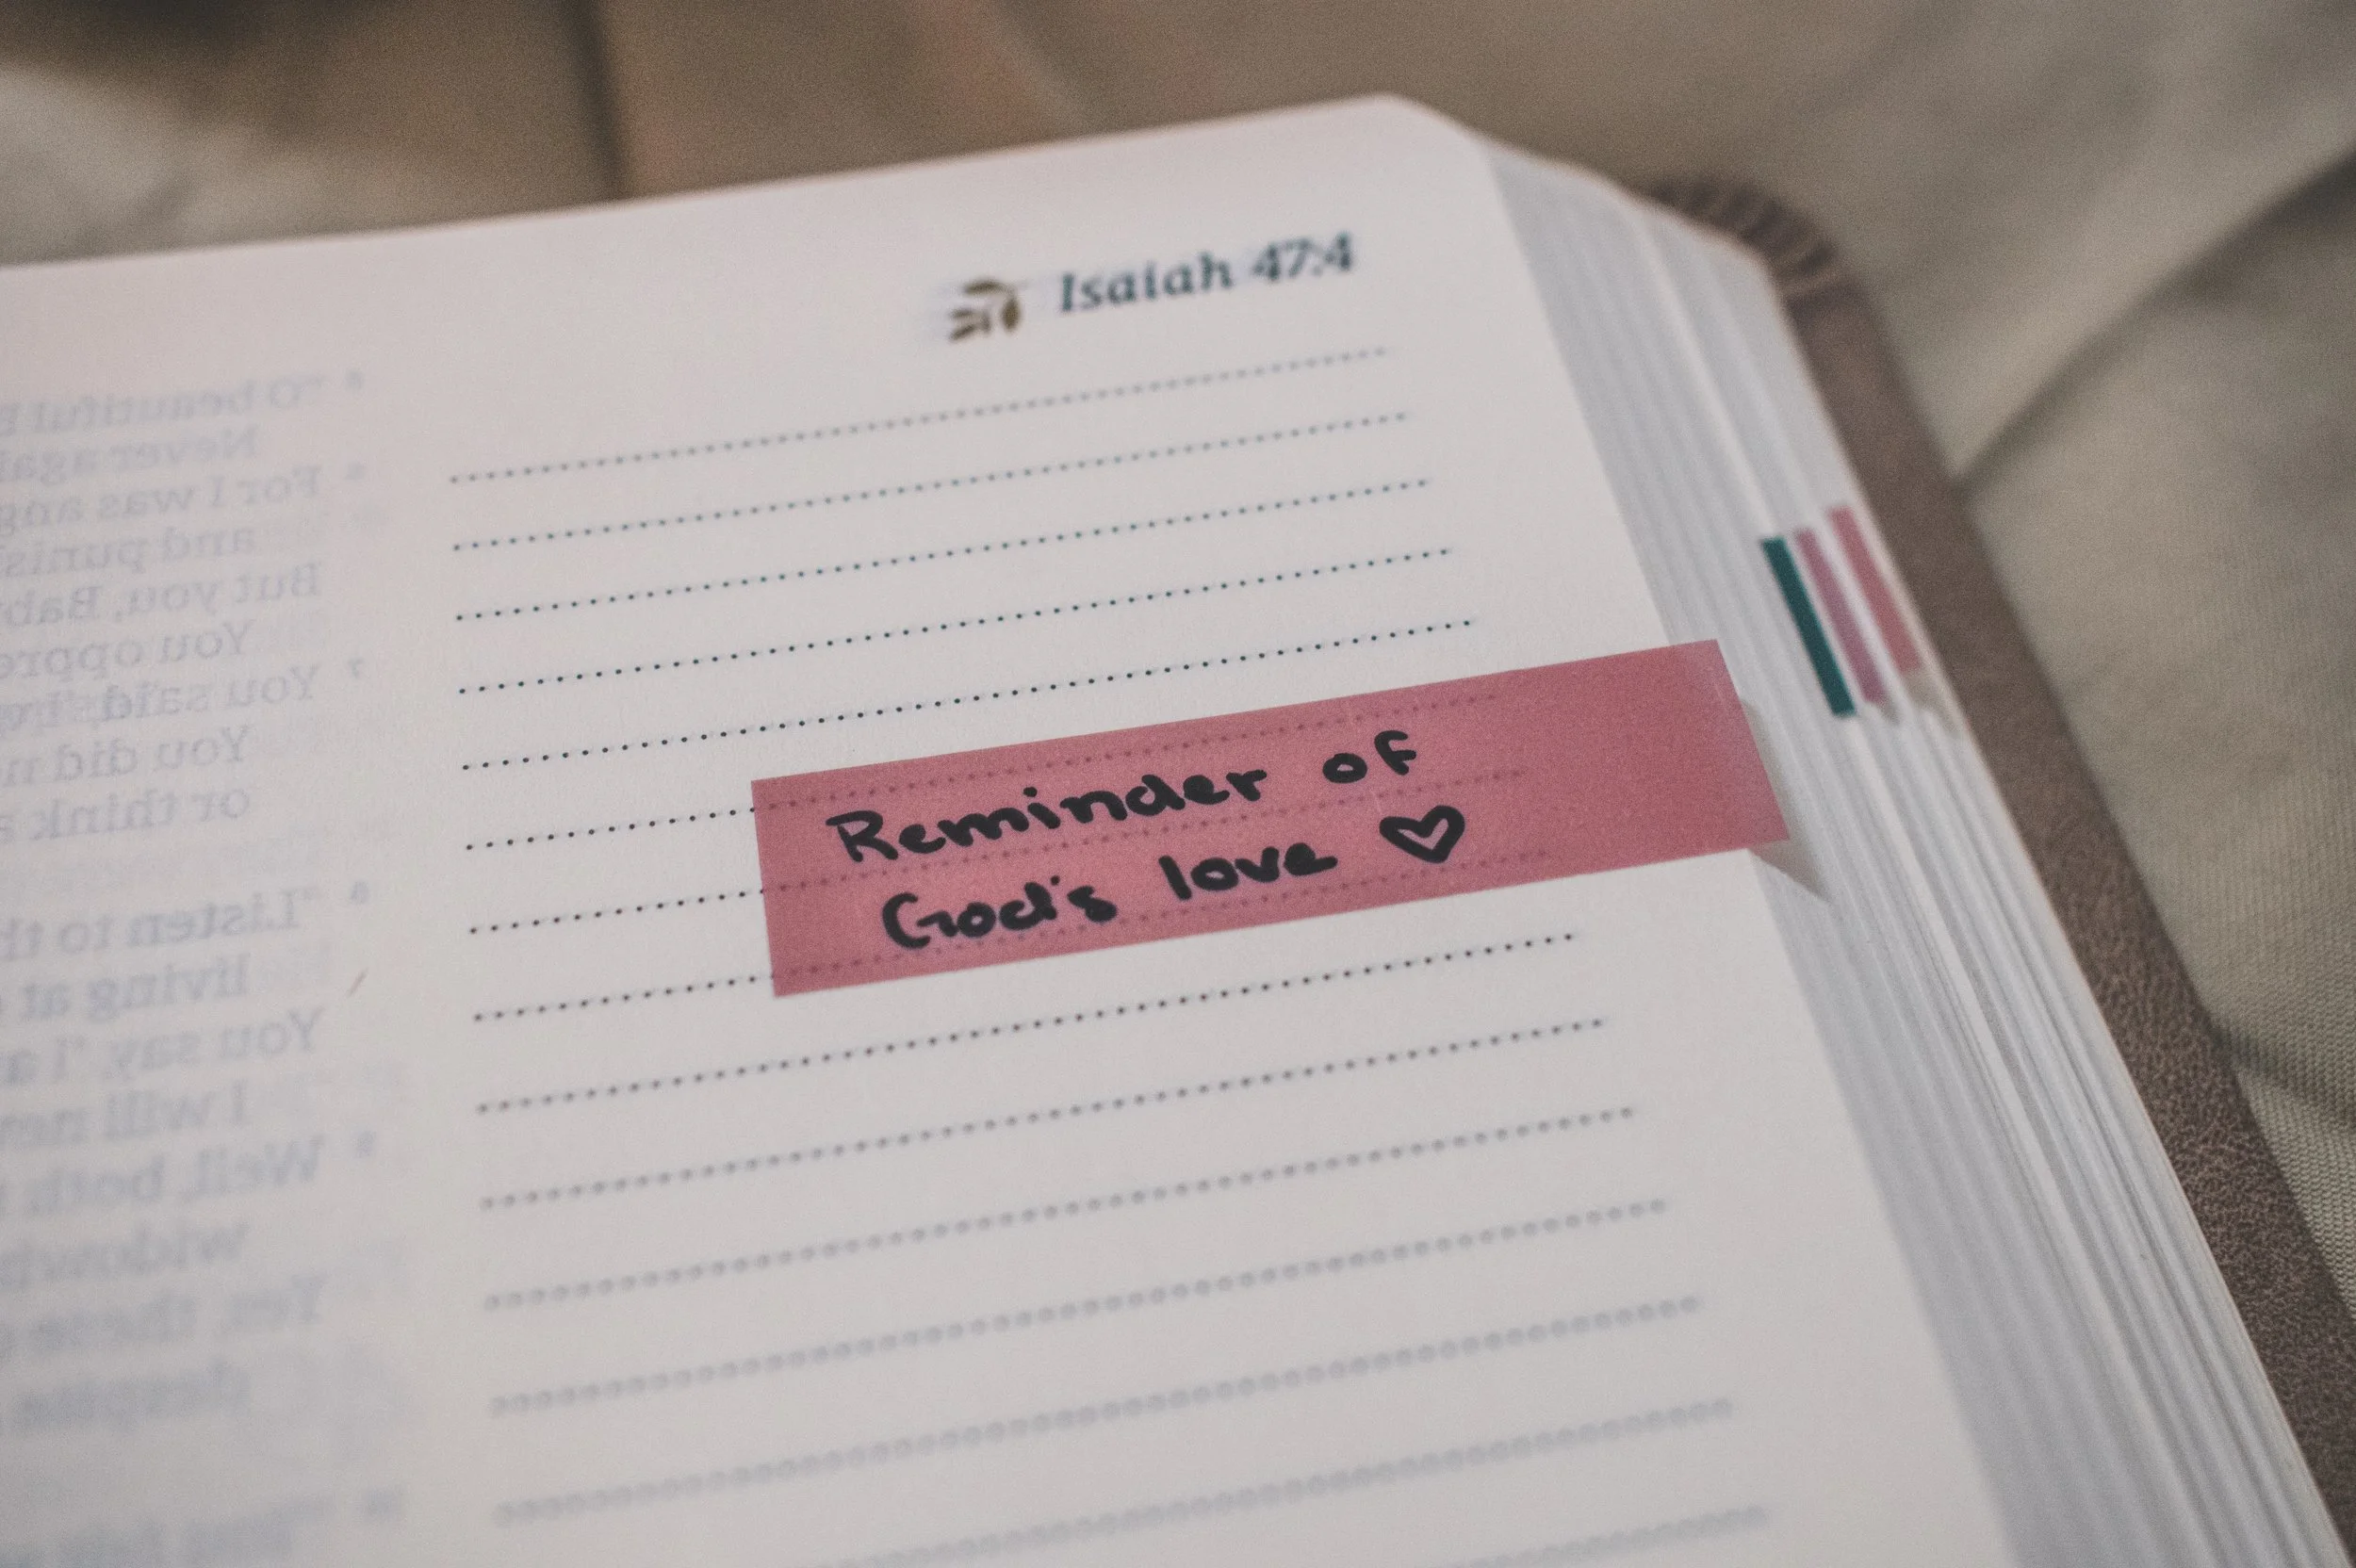 Isaiah 47:4
Reminder of
God's love ♡
"O beautiful
Never
For I was
and
But you,
You
You said,
You did
or think
"Listen to
living at
You say, 'I
I will
Well, both
Yes, these
despite